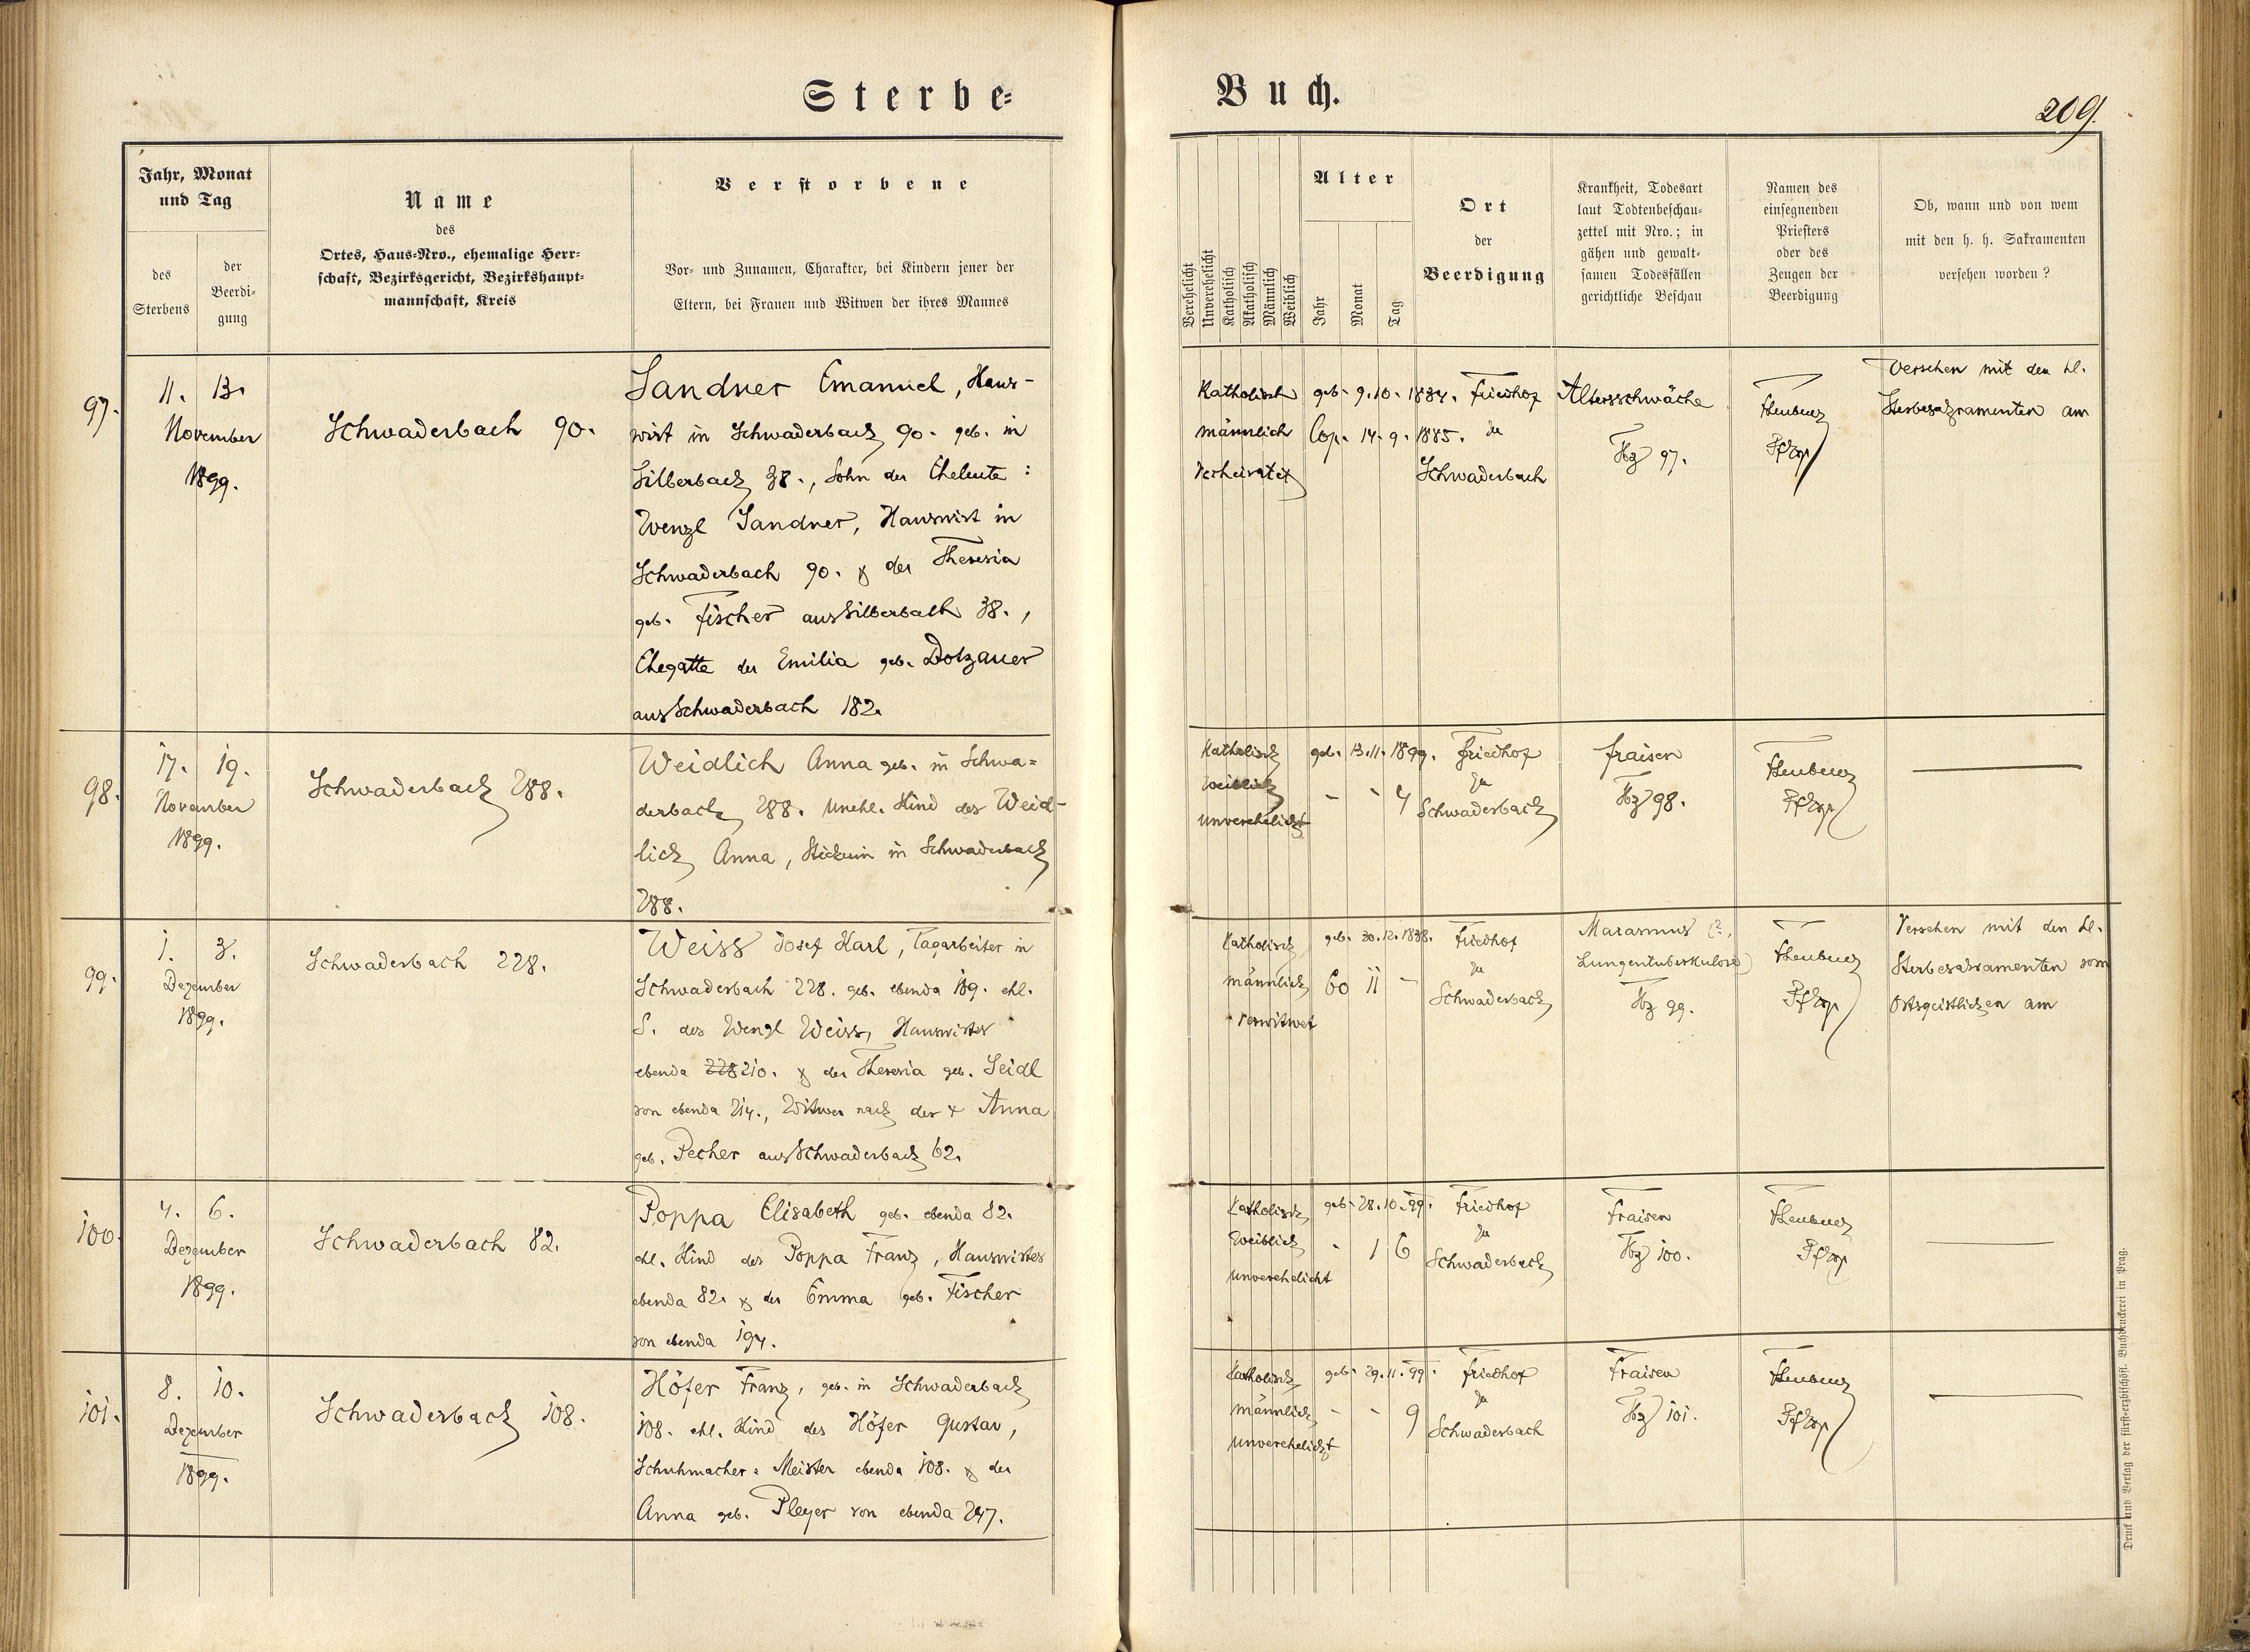 Sterbe=
Buch.
209.
Jahr, Monat
und Tag
des
Sterbens
der
Beerdi=
gung
Name
des
Ortes, Haus=Nro., ehemalige Herr=
schaft, Bezirksgericht, Bezirkshaupt=
mannschaft, Kreis
Verstorbene
Vor= und Zunamen, Charakter, bei Kindern jener der
Eltern, bei Frauen und Witwen der ihres Mannes
Verehelicht
Unverehelicht
Katholisch
Akatholisch
Männlich
Weiblich
Alter
Jahr
Monat
Tag
Ort
der
Beerdigung
Krankheit, Todesart
laut Todtenbeschau=
zettel mit Nro.; in
gähen und gewalt=
samen Todesfällen
gerichtliche Beschau
Namen des
einsegnenden
Priesters
oder des
Zeugen der
Beerdigung
Ob, wann und von wem
mit den h. h. Sakramenten
versehen worden?
97.
11. 13.
November
1899.
Schwaderbach 90.
Sandner Emanuel, Haus-
wirt in Schwaderbach 90. geb. in
Silberbach 38., Sohn der Eheleute:
Wenzl Sandner, Hauswirt in
Schwaderbach 90. & der Theresia
geb. Fischer aus Silberbach 38.,
Ehegatte der Emilia geb. Dotzauer
aus Schwaderbach 182.
Katholisch
männlich
verheiratet
geb. 9.10. 1834.
Cop. 14. 9. 1885.
Friedhof
zu
Schwaderbach
Altersschwäche
Tbz 97.
Versehen mit den hl.
Sterbesakramenten am
98.
17. 19.
November
1899.
Schwaderbach 288.
Weidlich Anna geb. in Schwa=
derbach 288. unehl. Kind der Weid-
lich Anna, Stickerin in Schwaderbach
288.
Katholisch
Weiblich
unverehelicht
geb. 13.11. 1899.
- - 4
Friedhof
zu
Schwaderbach
Fraisen
Tbz 98.
99.
1. 3.
Dezember
1899.
Schwaderbach 228.
Weiss Josef Karl, Tagarbeiter in
Schwaderbach 228. geb. ebenda 189. ehl.
S. des Wenzl Weiss, Hauswirtes
ebenda 228 210. & der Theresia geb. Seidl
von ebenda 214., Witwer nach der + Anna
geb. Pecher aus Schwaderbach 62.
Katholisch
männlich
verwitwet
geb. 30.12.1838.
60 11 -
Friedhof
zu
Schwaderbach
Marasmus (?,
Lungentuberkulose)
Tbz 99.
Versehen mit den hl.
Sterbesakramenten vom
Ortsgeistlichen am
100.
4. 6.
Dezember
1899.
Schwaderbach 82.
Poppa Elisabeth geb. ebenda 82.
ehl. Kind des Poppa Franz, Hauswirtes
ebenda 82. & der Emma geb. Fischer
von ebenda 194.
Katholisch
Weiblich
unverehelicht
geb. 28.10.99.
- 1 6
Friedhof
zu
Schwaderbach
Fraisen
Tbz 100.
101.
8. 10.
Dezember
1899.
Schwaderbach 108.
Höfer Franz, geb. in Schwaderbach
108. ehl. Kind des Höfer Gustav,
Schuhmacher=Meister ebenda 108. & der
Anna geb. Pleyer von ebenda 247.
Katholisch
männlich
unverehelicht
geb. 29.11.99.
- - 9
Friedhof
zu
Schwaderbach
Fraisen
Tbz 101.
Druck und Verlag der fürst=erzbischöfl. Buchdruckerei in Prag.